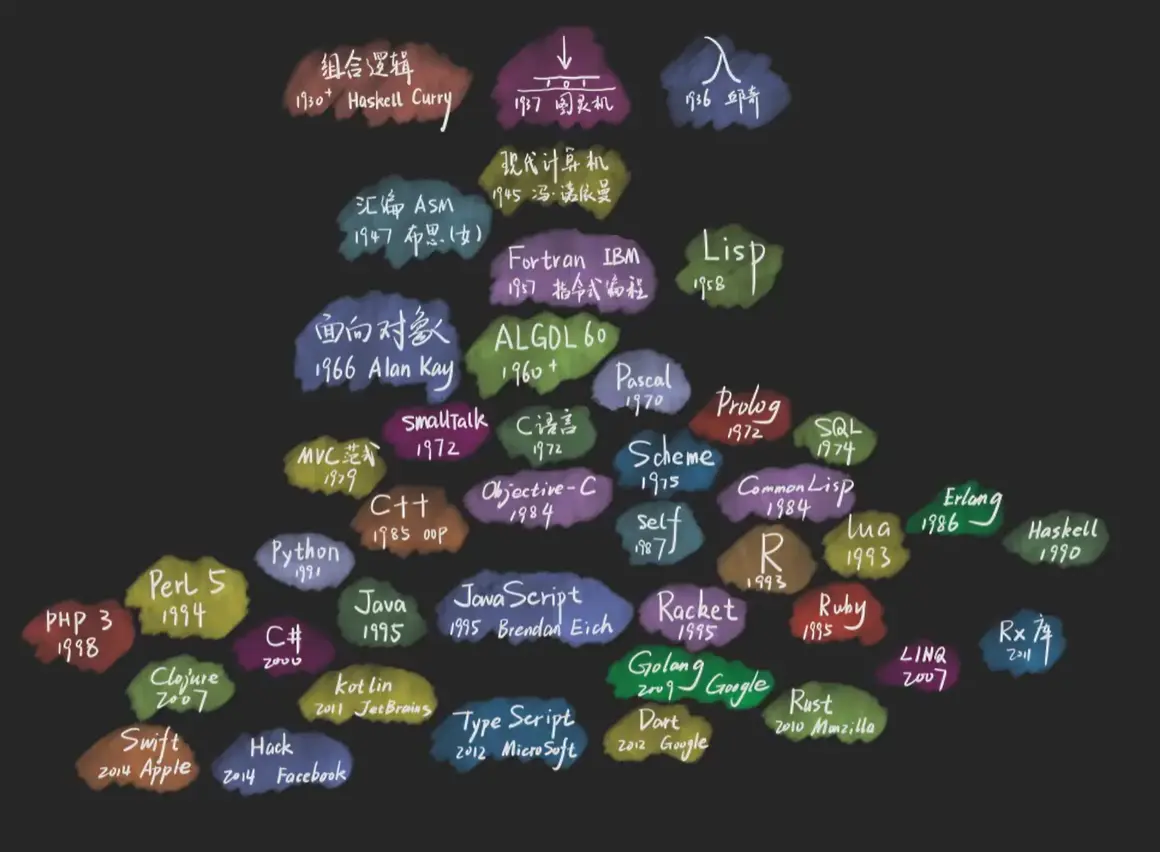 组合逻辑
1930+ Haskell Curry
1 0 1
1937 图灵机
λ
1936 邱奇
现代计算机
1945 冯·诺依曼
汇编 ASM
1947 布思(女)
Fortran IBM
1957 指令式编程
Lisp
1958
面向对象
1966 Alan Kay
ALGDL 60
1960+
Pascal
1970
Prolog
1972
SmallTalk
1972
C语言
1972
SQL
1974
MVC 范式
1979
Scheme
1975
C++
1985 OOP
Objective-C
1984
CommonLisp
1984
Erlang
1986
Self
1987
Lua
1993
Haskell
1990
Python
1991
R
1993
Perl 5
1994
PHP 3
1998
Java
1995
JavaScript
1995 Brendan Eich
Racket
1995
Ruby
1995
Rx 库
2011
C#
2000
LINQ
2007
Clojure
2007
Golang
2009 Google
Kotlin
2011 JetBrains
Rust
2010 Monzilla
Type Script
2012 MicroSoft
Dart
2012 Google
Swift
2014 Apple
Hack
2014 Facebook